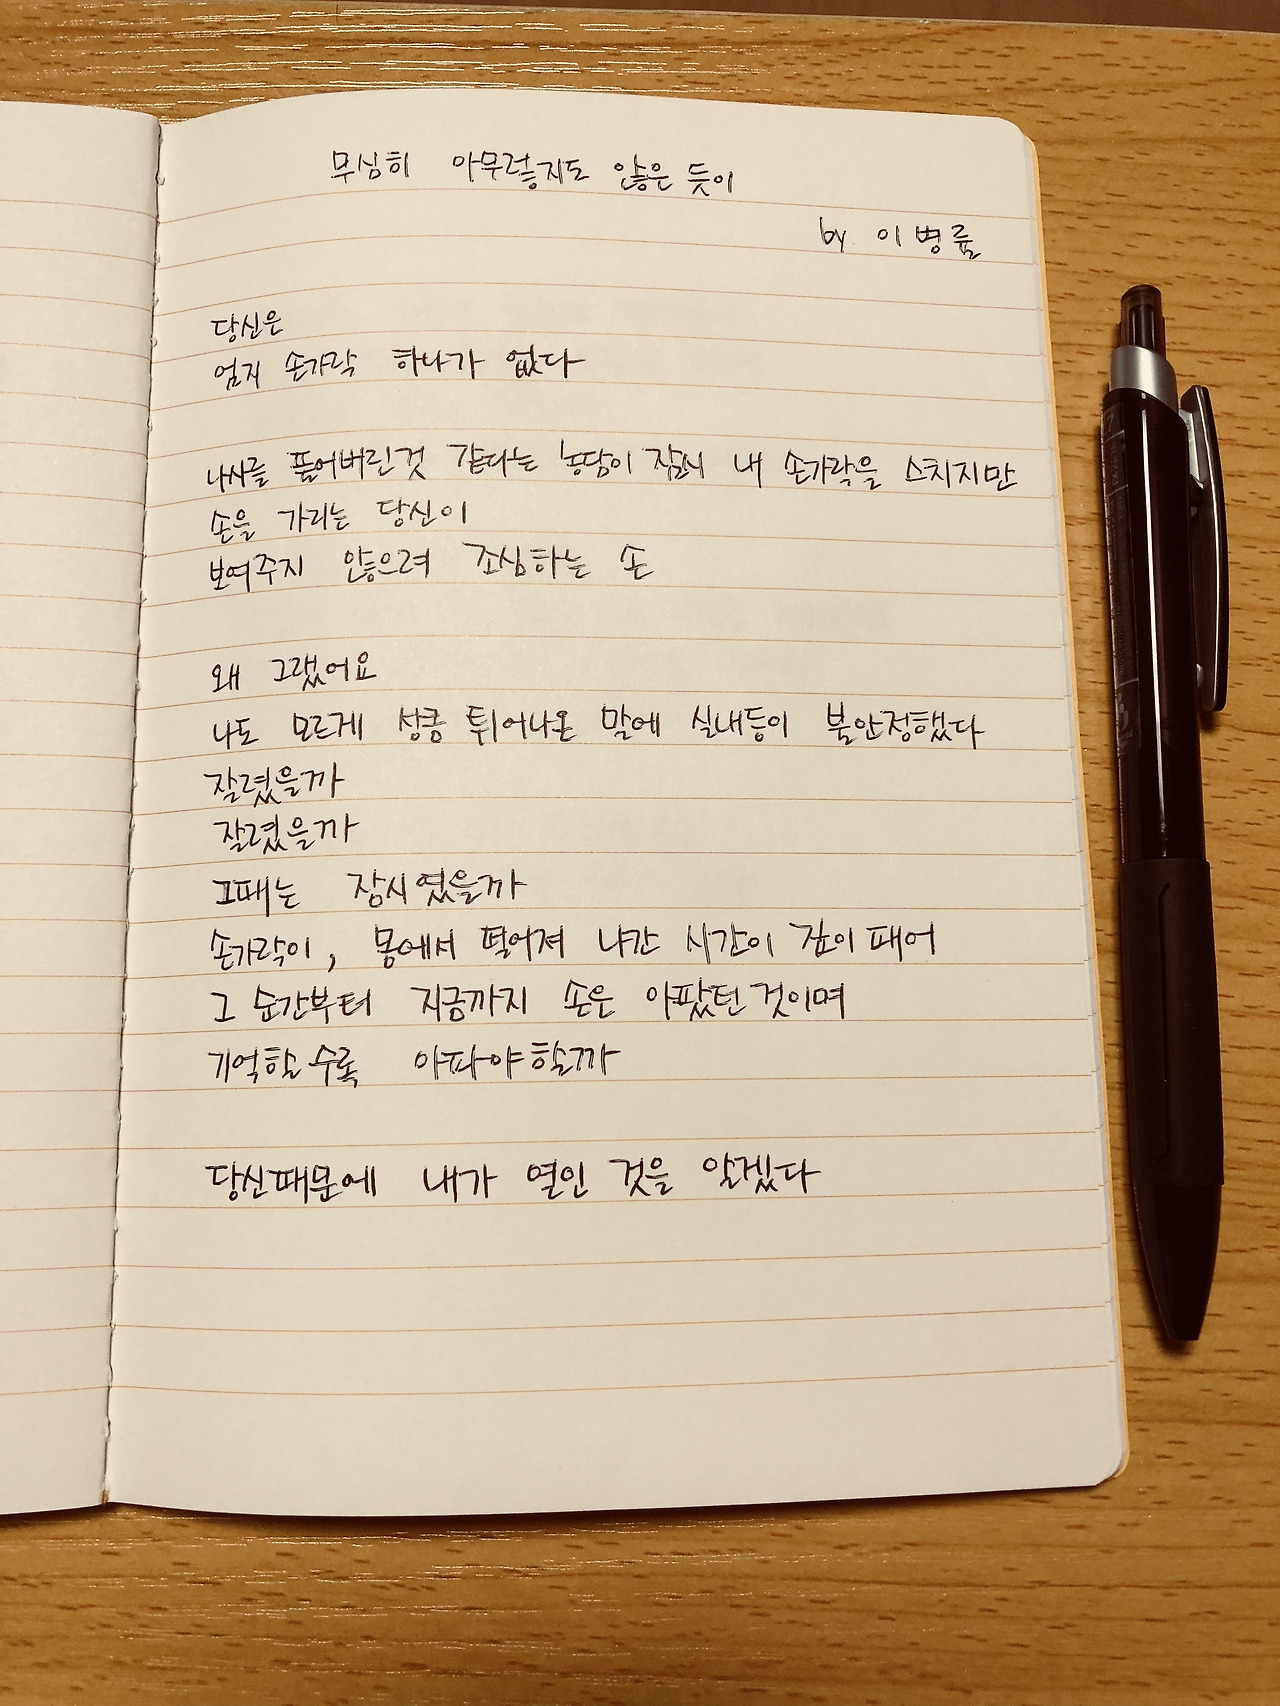 무심히 아무렇지도 않은 듯이
by 이병률
당신은
엄지 손가락 하나가 없다
나사를 풀어버린것 같다는 농담이 잠시 내 손가락을 스치지만
손을 가리는 당신이
보여주지 않으려 조심하는 손
왜 그랬어요
나도 모르게 성큼 튀어나온 말에 실내등이 불안정했다
잘렸을까
잘렸을까
그때는 잠시였을까
손가락이, 몸에서 떨어져 나간 시간이 깊이 패어
그 순간부터 지금까지 손은 아팠던 것이며
기억할수록 아파야 할까
당신때문에 내가 열인 것을 알겠다